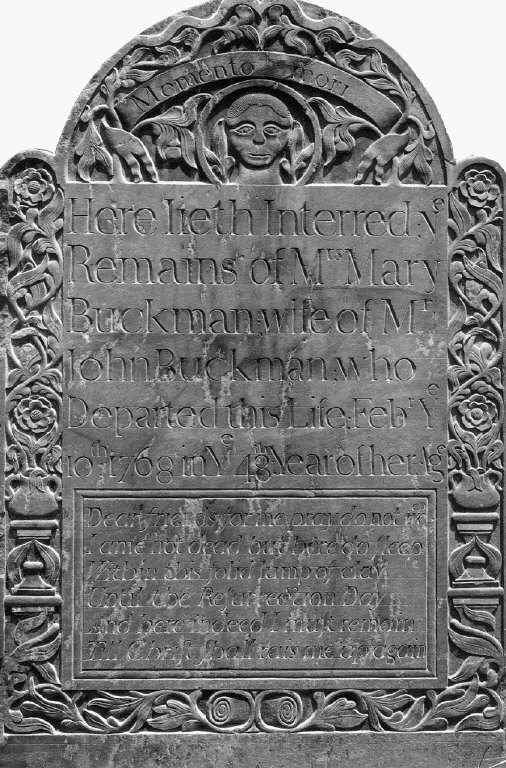 Memento Mori
Here lieth Interred yᵉ
Remains of Mʳˢ Mary
Buckman wife of Mʳ
John Buckman; who
Departed this Life; Febʳ Yᵉ
10ᵗʰ 1768 in Yᵉ Year of her Age
Dear friends for me pray do not
I ame not dead but here do sleep
Within this solid lump of clay
Until the Resurrection Day
And here indeed I must remain
Till Christ shall rais me up again